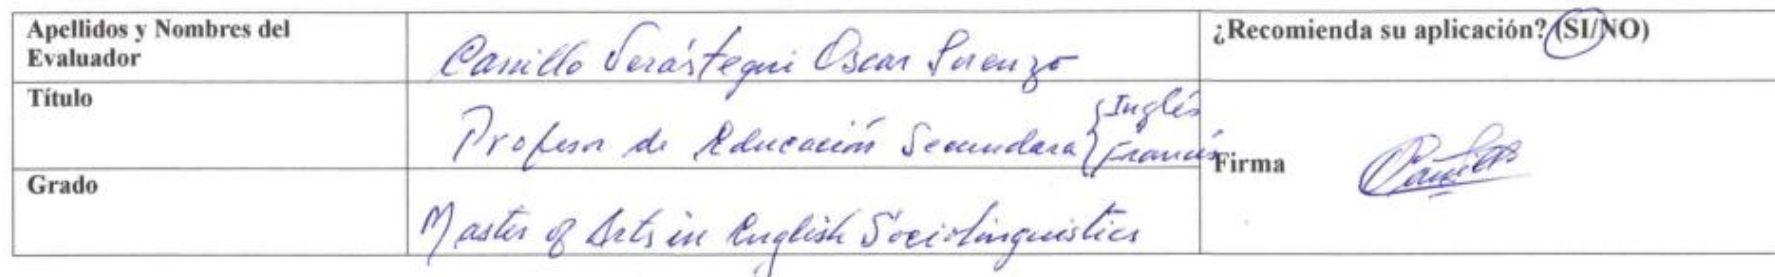 Apellidos y Nombres del
Evaluador
Carrillo Verástegui Oscar Lorenzo
¿Recomienda su aplicación? (SI/NO)
Título
Profesor de Educación Secundara { Inglés
Francés
Firma
Grado
Master of Arts in English Sociolinguistics